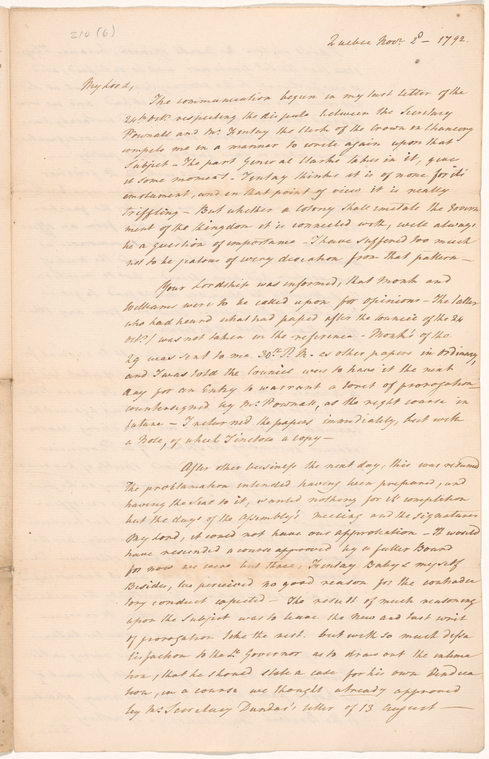 210 (6)
Quebec Novr. 2d - 1792.
My Lord,
The communication begun in my last letter of the
24 Octr. respecting the dispute between the Secretary
Pownall and Mr. Finlay the Clerk of the Crown in Chancery
compels me in a manner to write again upon that
Subject - The part General Clarke takes in it, gives
it some moment - Finlay thinks it is of none for its
emolument, and in that point of view it is really
triffling - But whether a Colony shall imitate the Govern
ment of the Kingdom it is connected with, will always
be a question of importance - I have suffered too much
not to be jealous of every deviation from that pattern -
Your Lordship was informed, that Monk and
Williams were to be called upon for opinions - The latter
who had heard what had passed after the Council of the 24
Octr. was not taken in the reference - Monk's of the
29 was sent to me 30th P.M. as other papers in ordinary,
and I was told the Council were to have it the next
day for an Entry to warrant a writ of prorogation
countersigned by Mr. Pownall, as the right course in
future - I returned the papers immediately, but with
a Note, of which I inclose a copy -
After other business the next day, this was
the proclamation intended having been prepared, and
having the Seal to it, wanted nothing for its completion
but the days of the Assembly's meeting and the signatures
My Lord, it could not have our approbation - It would
have rescinded a course approved by a fuller Board
for now we were but three, Finlay Baby & myself
Besides, we perceived no good reason for the contradic
tory conduct expected - The result of much reasoning
upon the Subject was to leave the New and last writ
of prorogation like the rest. but with so much dissa
tisfaction to the Lt. Governor as to draw out the intima
tion, that he should state a case for his own Vindica
tion, in a course we thought already approved
by Mr. Secretary Dundas's letter of 13 August -